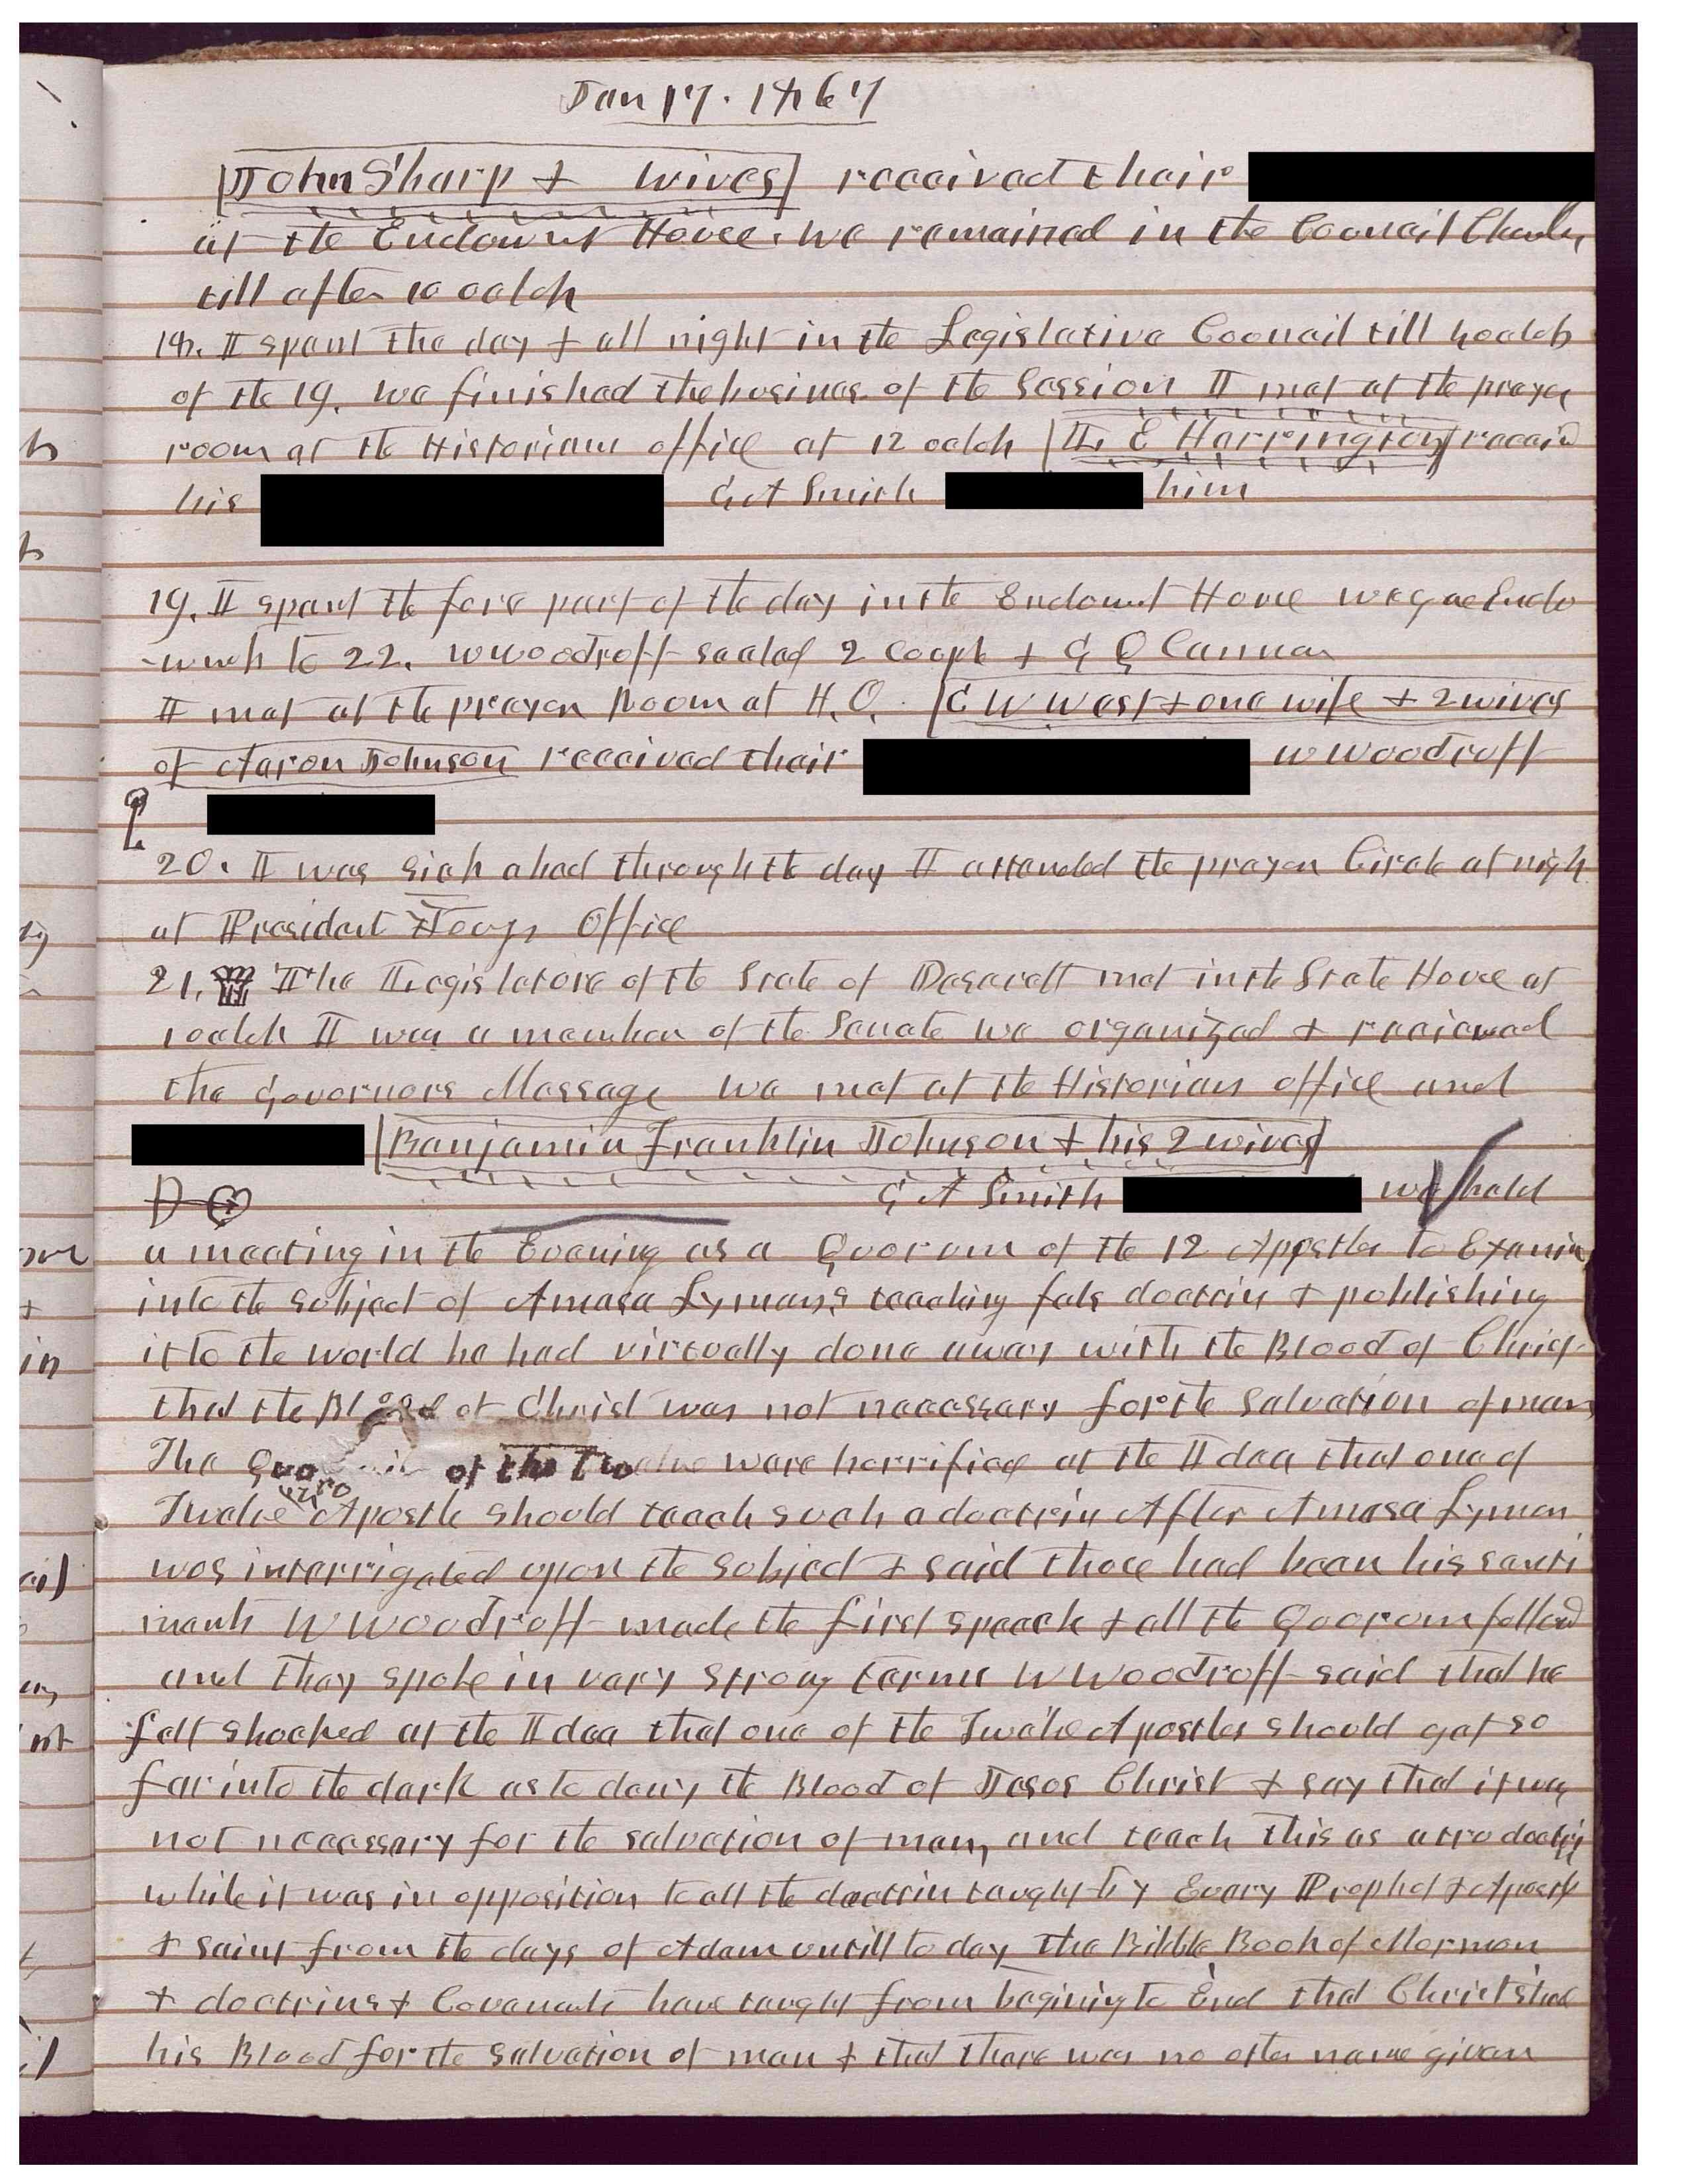 Jan 17. 1867
John Sharp + wives received their
at the Endowmt House. we remained in the Council Chamber
till after 10 oclock
18. I spent the day + all night in the Legislative Council till 4 oclok
of the 19. we finished the business of the Session I met at the prayer
room at the Historians office at 12 oclok L. E Harrington receivd
his G A Smith him
19. I spent the fore part of the day in the Endowmt House we gave Endo
-wmets to 22. W Woodruff sealed 2 Coupls + G Q Cannon
I met at the prayer Room at H. O. C W West + one wife + 2 wives
of Aaron Johnson received their W Woodruff
20. I was sick abed through the day I attended the prayer Circle at nigh
at President Youngs Office
21. The Legislature of the State of Deserett met in the State House at
10 oclok I was a member of the Senate we organized + received
the Governors Message we met at the Historians office and
Benjamin Franklin Johnson + his 2 wives
G A Smith we held
a meeting in the Evening as a Quorum of the 12 Appstles to Examin
into the subject of Amasa Lymans teaching fals doctrin + publishing
it to the world he had virtually done away with the Blood of Christ
that the Blood of Christ was not necessary for the salvation of man
The Quorum of the Twelve were horrified at the Idea that one of
Twelve Apostle should teach such a doctrin After Amasa Lyman
was interrigated upon the subject + said those had been his senti
ments W Woodruff made the first speech + all the Quorum follewd
and they spoke in very strong terms W Woodruff said that he
felt shocked at the Idea that one of the Twelve Apostles should get so
far into the dark as to deny the Blood of Jesus Christ + say that it was
not necessary for the salvation of man, and teach this as a tru doctrin
while it was in opposition to all the doctrin taught by Every Prophet + Apostle
+ saint from the days of Adam untill to day The Bibble, Book of Mormon
+ doctrins + Covenants have taught from begining to End that Christ shed
his Blood for the salvation of man + that there was no other name given